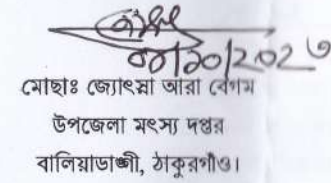 ০৮/১০/২০২৩
মোছাঃ জোৎস্না আরা বেগম
উপজেলা মৎস্য দপ্তর
বালিয়াডাঙ্গী, ঠাকুরগাঁও।